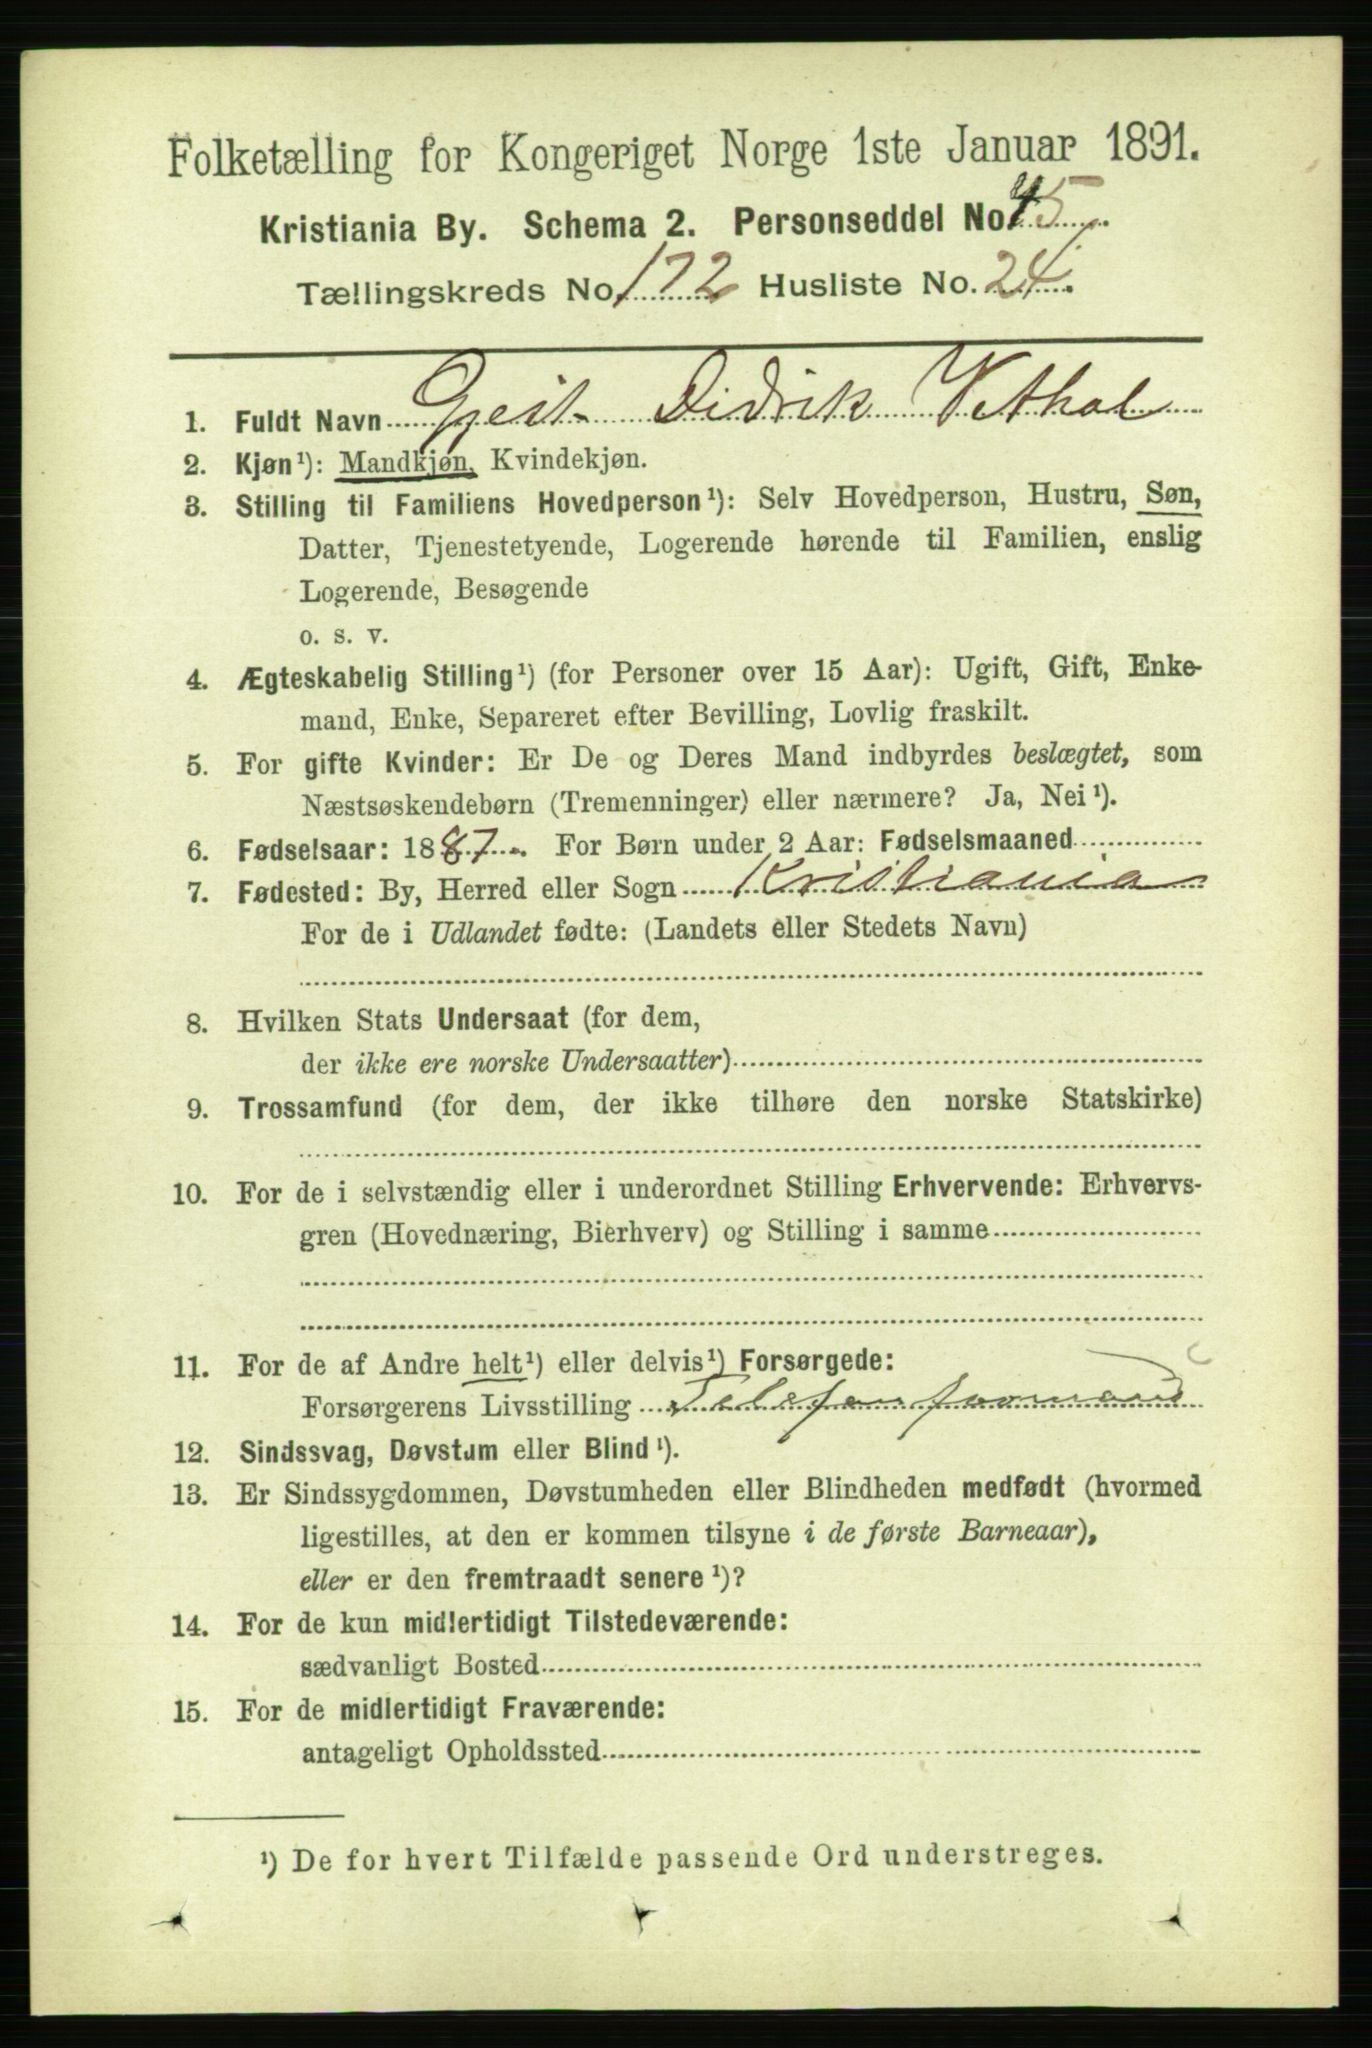 Folketælling for Kongeriget Norge 1ste Januar 1891.
Kristiania By. Schema 2. Personseddel No. 45.
Tællingskreds No. 172 Husliste No. 24.
1. Fuldt Navn Gjest Didrik Vethal
2. Kjøn¹): Mandkjøn, Kvindekjøn.
3. Stilling til Familiens Hovedperson¹): Selv Hovedperson, Hustru, Søn,
Datter, Tjenestetyende, Logerende hørende til Familien, enslig
Logerende, Besøgende
o. s. v.
4. Ægteskabelig Stilling¹) (for Personer over 15 Aar): Ugift, Gift, Enke-
mand, Enke, Separeret efter Bevilling, Lovlig fraskilt.
5. For gifte Kvinder: Er De og Deres Mand indbyrdes beslægtet, som
Næstsøskendebørn (Tremenninger) eller nærmere? Ja, Nei¹).
6. Fødselsaar: 1887. For Børn under 2 Aar: Fødselsmaaned
7. Fødested: By, Herred eller Sogn Kristiania
For de i Udlandet fødte: (Landets eller Stedets Navn)
8. Hvilken Stats Undersaat (for dem,
der ikke ere norske Undersaatter)
9. Trossamfund (for dem, der ikke tilhøre den norske Statskirke)
10. For de i selvstændig eller i underordnet Stilling Erhvervende: Erhvervs-
gren (Hovednæring, Bierhverv) og Stilling i samme
11. For de af Andre helt¹) eller delvis¹) Forsørgede:
Forsørgerens Livsstilling Telefonformand
12. Sindssvag, Døvstum eller Blind¹).
13. Er Sindssygdommen, Døvstumheden eller Blindheden medfødt (hvormed
ligestilles, at den er kommen tilsyne i de første Barneaar),
eller er den fremtraadt senere¹)?
14. For de kun midlertidigt Tilstedeværende:
sædvanligt Bosted
15. For de midlertidigt Fraværende:
antageligt Opholdssted
¹) De for hvert Tilfælde passende Ord understreges.